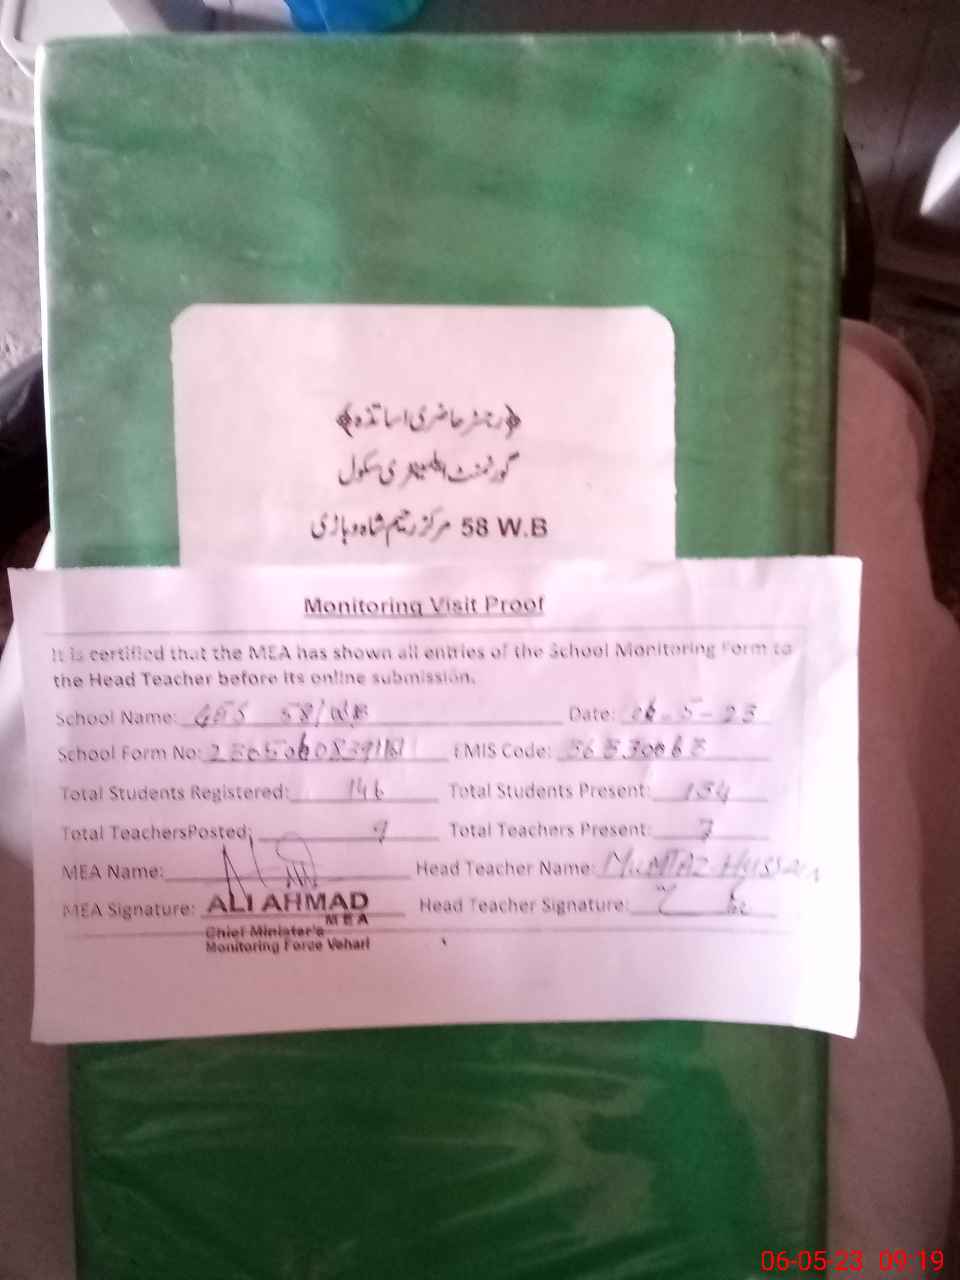 ﴿رجسٹر حاضری اساتذہ﴾
گورنمنٹ ایلیمنٹری سکول
58 W.B مرکز رحیم شاہ وہاڑی
Monitoring Visit Proof
It is certified that the MEA has shown all entries of the School Monitoring Form to
the Head Teacher before its online submission.
School Name: GES 58/WB Date: 06-5-23
School Form No: EMIS Code:
Total Students Registered: 146 Total Students Present: 134
Total TeachersPosted: 9 Total Teachers Present: 7
MEA Name: Head Teacher Name: MUMTAZ HUSSAIN
MEA Signature: ALI AHMAD Head Teacher Signature:
MEA
Chief Minister's
Monitoring Force Vehari
06-05-23 09:19